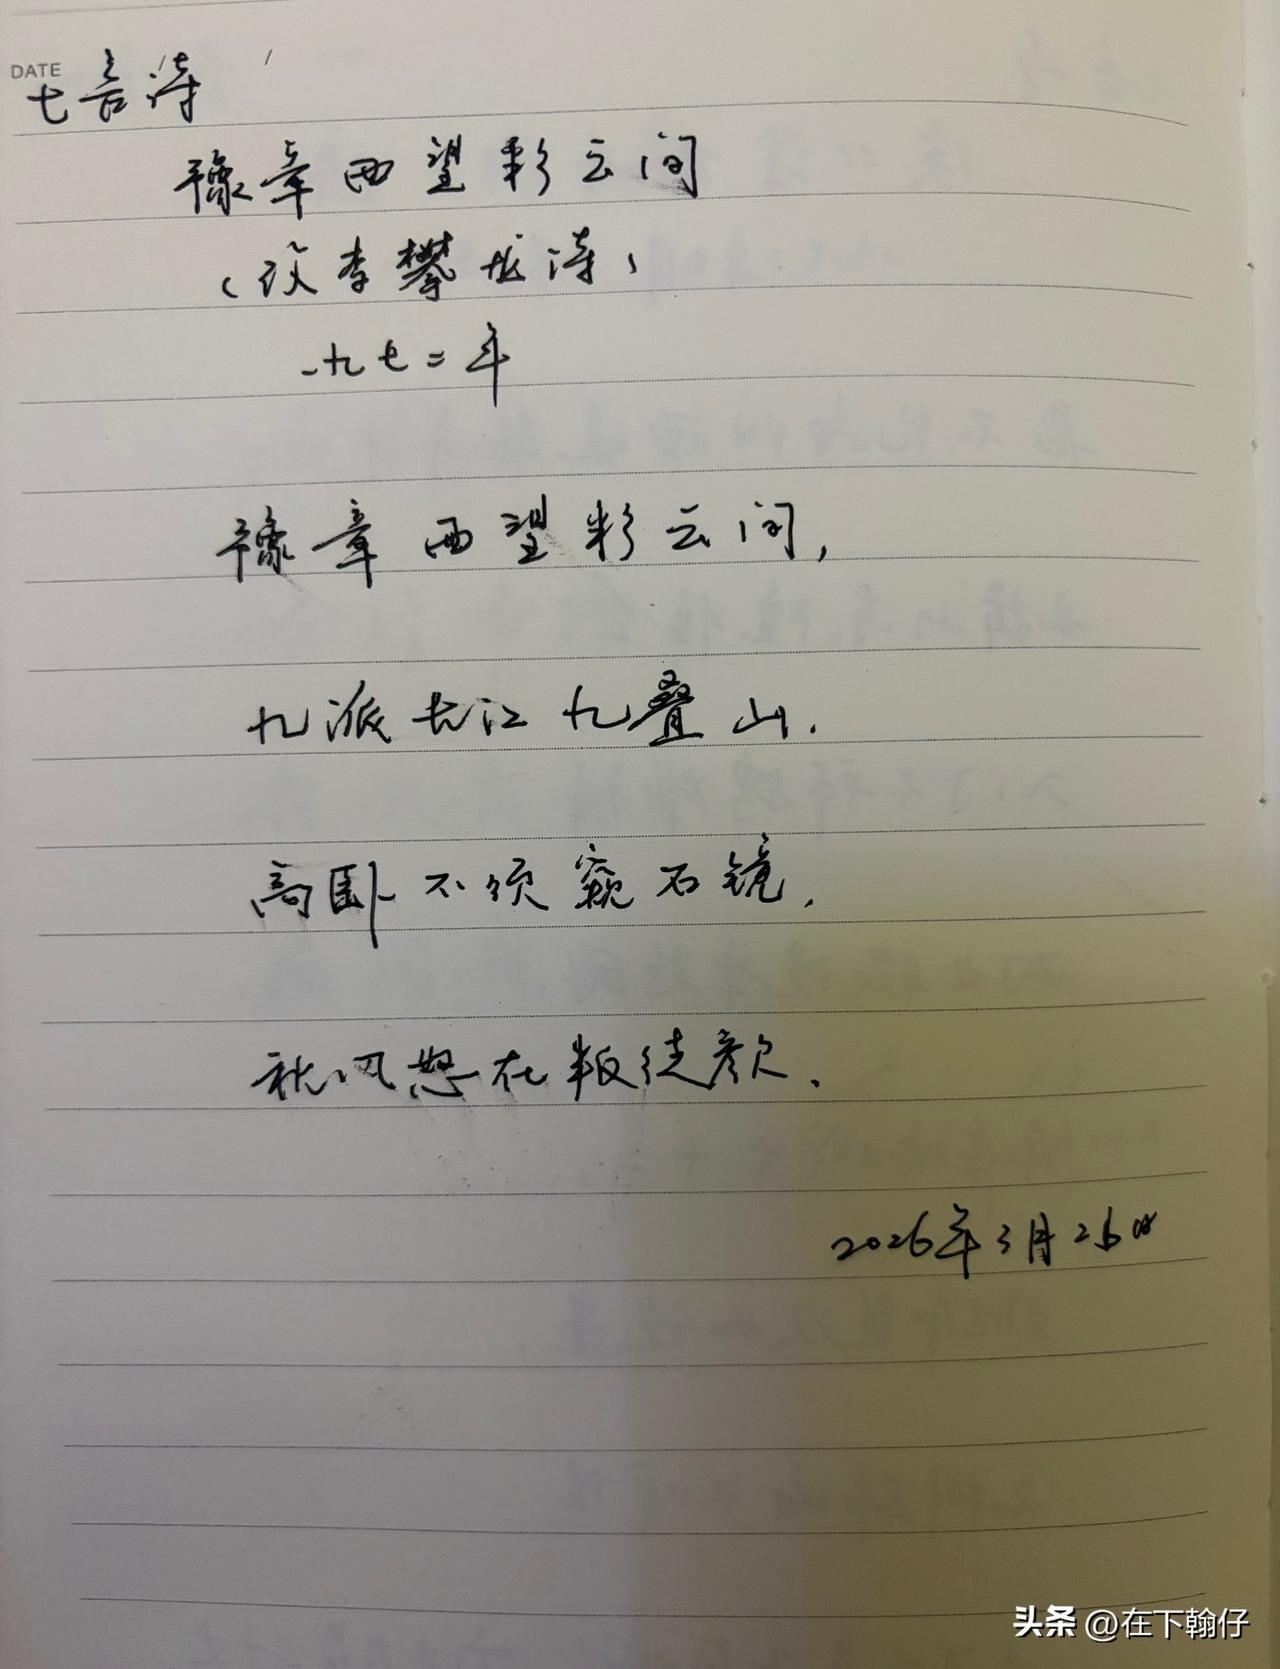 DATE / /
七言诗
豫章西望彩云间
（议李攀龙诗）
一九七二年
豫章西望彩云间，
九派长江九叠山.
高卧不须窥石镜，
秋风怒在叛徒颜.
2026年3月26日
头条 @在下翰仔